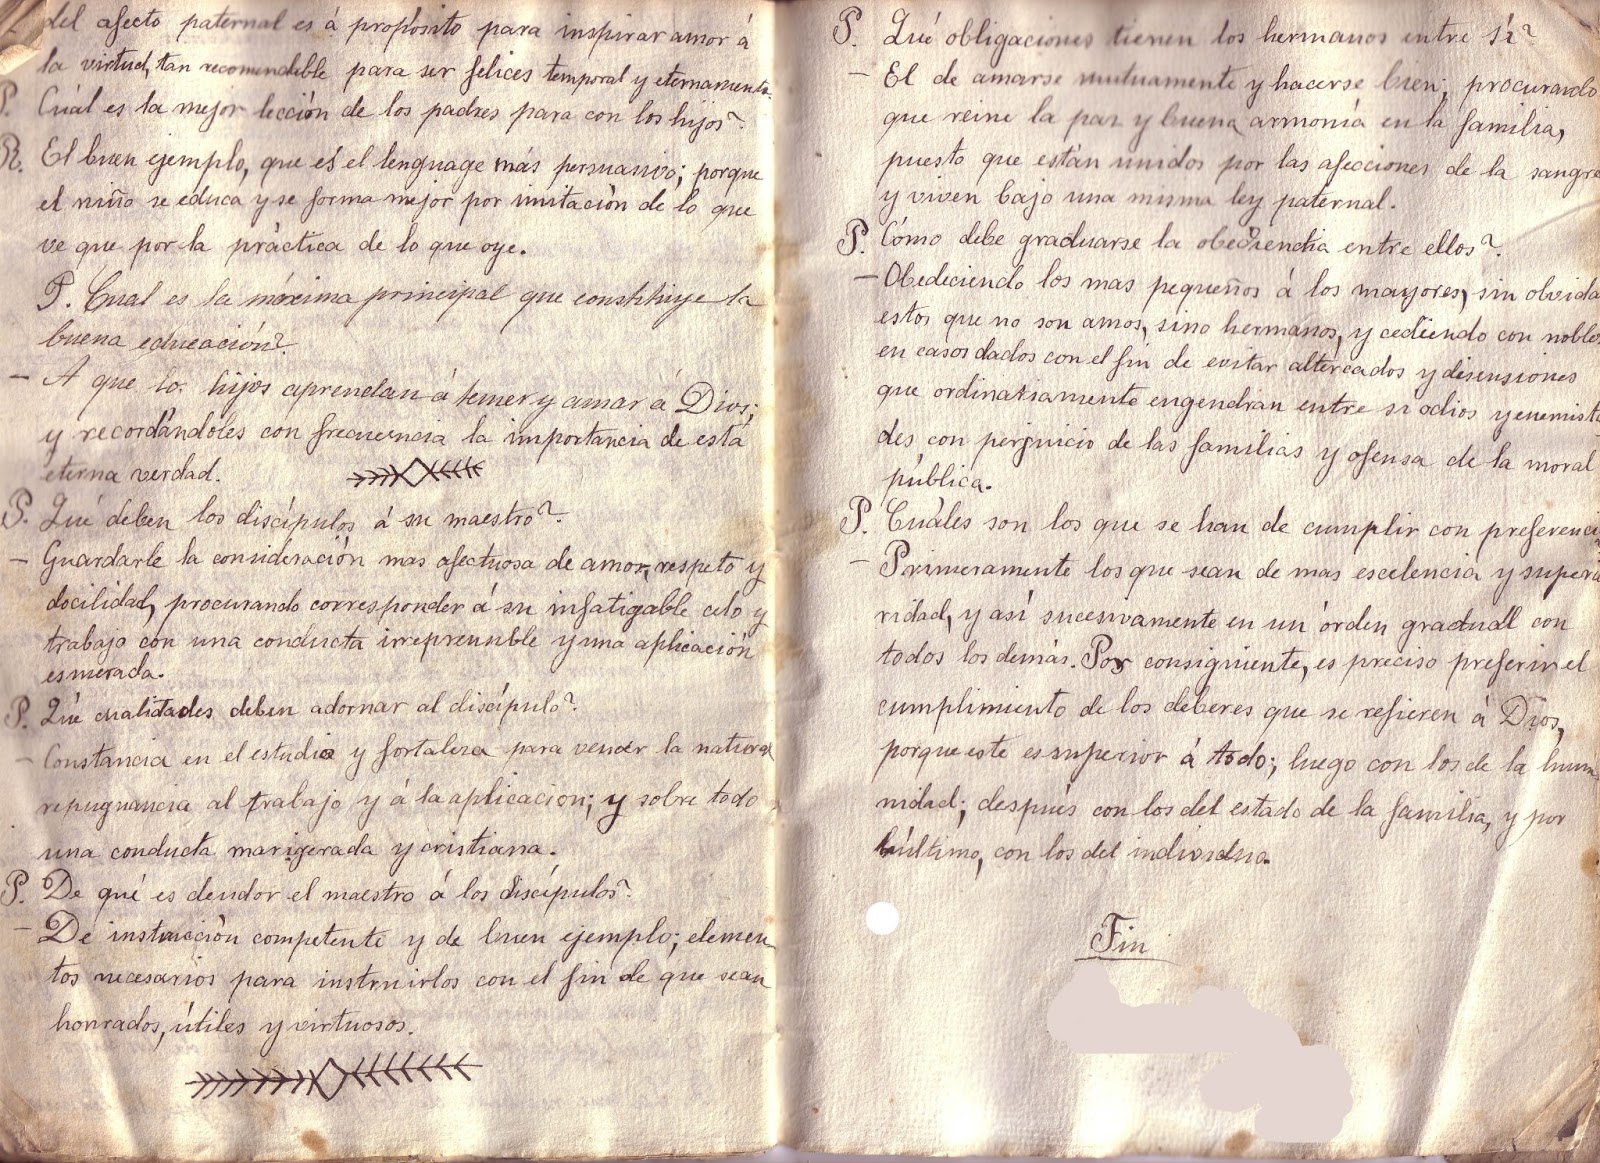 del afecto paternal es á propósito para inspirar amor á
la virtud, tan recomendable para ser felices temporal y eternamente.
P. Cuál es la mejor lección de los padres para con los hijos?
R. El buen ejemplo, que es el lenguage más persuasivo; porque
el niño se educa y se forma mejor por imitación de lo que
ve que por la práctica de lo que oye.
P. Cual es la máxima principal que constituye la
buena educación?
- A que los hijos aprendan á temer y amar á Dios;
y recordándoles con frecuencia la importancia de está
eterna verdad.
P. Qué deben los discípulos á su maestro?
- Guardarle la consideración mas afectuosa de amor, respeto y
docilidad, procurando corresponder á su infatigable celo y
trabajo con una conducta irreprensible y una aplicación
esmerada.
P. Qué cualidades deben adornar al discípulo?
- Constancia en el estudio y fortaleza para vencer la natural
repugnancia al trabajo y á la aplicacion; y sobre todo
una conducta marigerada y cristiana.
P. De qué es deudor el maestro á los discípulos?
- De instrucción competente y de buen ejemplo; elemen
tos necesarios para instruirlos con el fin de que sean
honrados, útiles y virtuosos.
P. Qué obligaciones tienen los hermanos entre sí?
- El de amarse mutuamente y hacerse bien; procurando
que reine la paz y buena armonía en la familia,
puesto que están unidos por las afecciones de la sangre
y viven bajo una misma ley paternal.
P. Cómo debe graduarse la obediendia entre ellos?
- Obedeciendo los mas pequeños á los mayores, sin olvida
estos que no son amos, sino hermanos, y cediendo con nobles
en casos dados con el fin de evitar altercados y disensiones
que ordinariamente engendran entre si odios y enemista
des con perjuicio de las familias y ofensa de la moral
pública.
P. Cuáles son los que se han de cumplir con preferenci
- Primeramente los que sean de mas escelencia y superio
ridad, y así sucesivamente en un órden graduall con
todos los demás. Por consiguiente, es preciso preferir el
cumplimiento de los deberes que se refieren á Dios,
porque este es superior á todo; luego con los de la huma
nidad; después con los del estado de la familia, y por
último, con los del individuo.
Fin